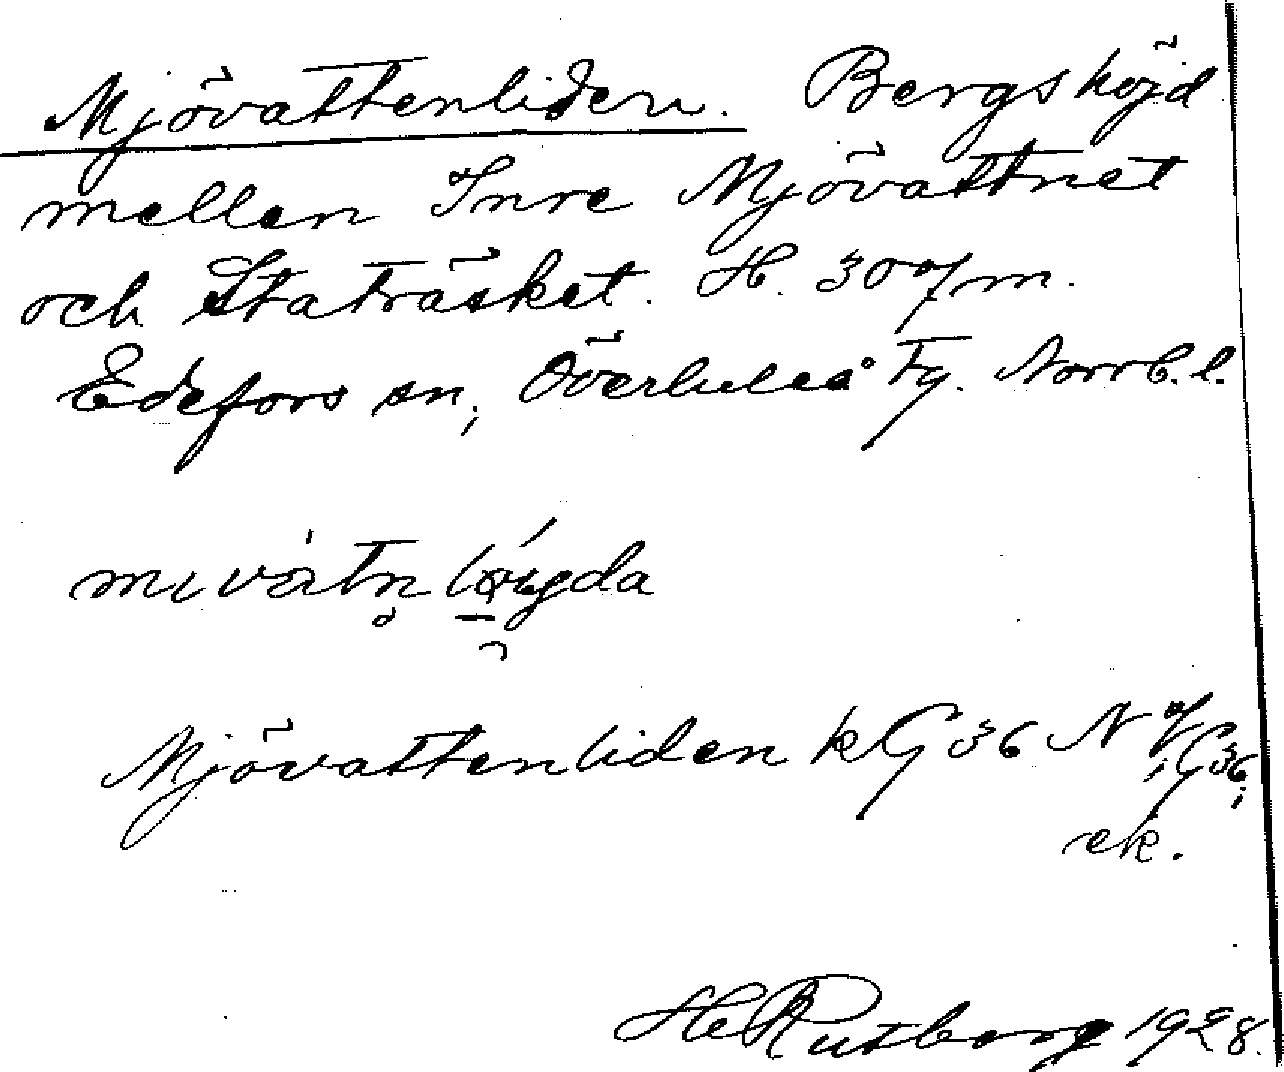 Mjövattenliden. Bergshöjd
mellan Inre Mjövattnet
och Staträsket. H. 300 m.
Edefors sn, Överluleå tg. Norrb. l.
Mjövattenliden k G 36 N
ek.
He Rutberg 1928.